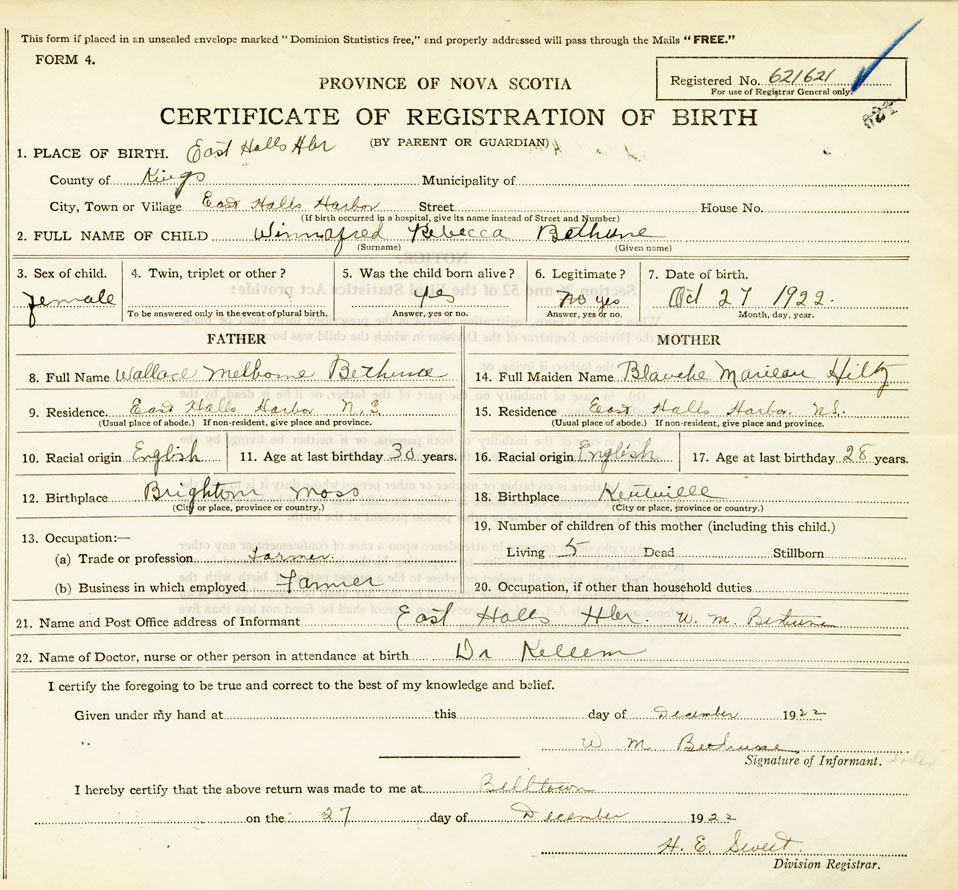 This form if placed in an unsealed envelope marked "Dominion Statistics free," and properly addressed will pass through the Mails "FREE."
FORM 4.
Registered No. 621621
For use of Registrar General only.
PROVINCE OF NOVA SCOTIA
CERTIFICATE OF REGISTRATION OF BIRTH
(BY PARENT OR GUARDIAN)
1. PLACE OF BIRTH. East Halls Hbr
County of Kings Municipality of
City, Town or Village East Halls Harbor Street House No.
(If birth occurred in a hospital, give its name instead of Street and Number)
2. FULL NAME OF CHILD Winnafred Rebecca Bethune
(Surname) (Given name)
3. Sex of child. 4. Twin, triplet or other? 5. Was the child born alive? 6. Legitimate? 7. Date of birth.
female yes no yes Oct 27 1922.
To be answered only in the event of plural birth. Answer, yes or no. Answer, yes or no. Month, day, year.
FATHER MOTHER
8. Full Name Wallace Melborne Bethune 14. Full Maiden Name Blanche Hiltz
9. Residence. East Halls Harbor N.S 15. Residence East Halls Harbor N.S.
(Usual place of abode.) If non-resident, give place and province. (Usual place of abode.) If non-resident, give place and province.
10. Racial origin English 11. Age at last birthday 30 years. 16. Racial origin English 17. Age at last birthday 28 years.
12. Birthplace Brighton Mass 18. Birthplace Kentville
(City or place, province or country.) (City or place, province or country.)
13. Occupation:— 19. Number of children of this mother (including this child.)
(a) Trade or profession farmer Living 5 Dead Stillborn
(b) Business in which employed Farmer 20. Occupation, if other than household duties
21. Name and Post Office address of Informant East Halls Hbr. W. M. Bethune
22. Name of Doctor, nurse or other person in attendance at birth Dr Kellem
I certify the foregoing to be true and correct to the best of my knowledge and belief.
Given under my hand at this day of December 1922
W M Bethune
Signature of Informant.
I hereby certify that the above return was made to me at Billtown
on the 27 day of December 1922
H. E. Sweet.
Division Registrar.